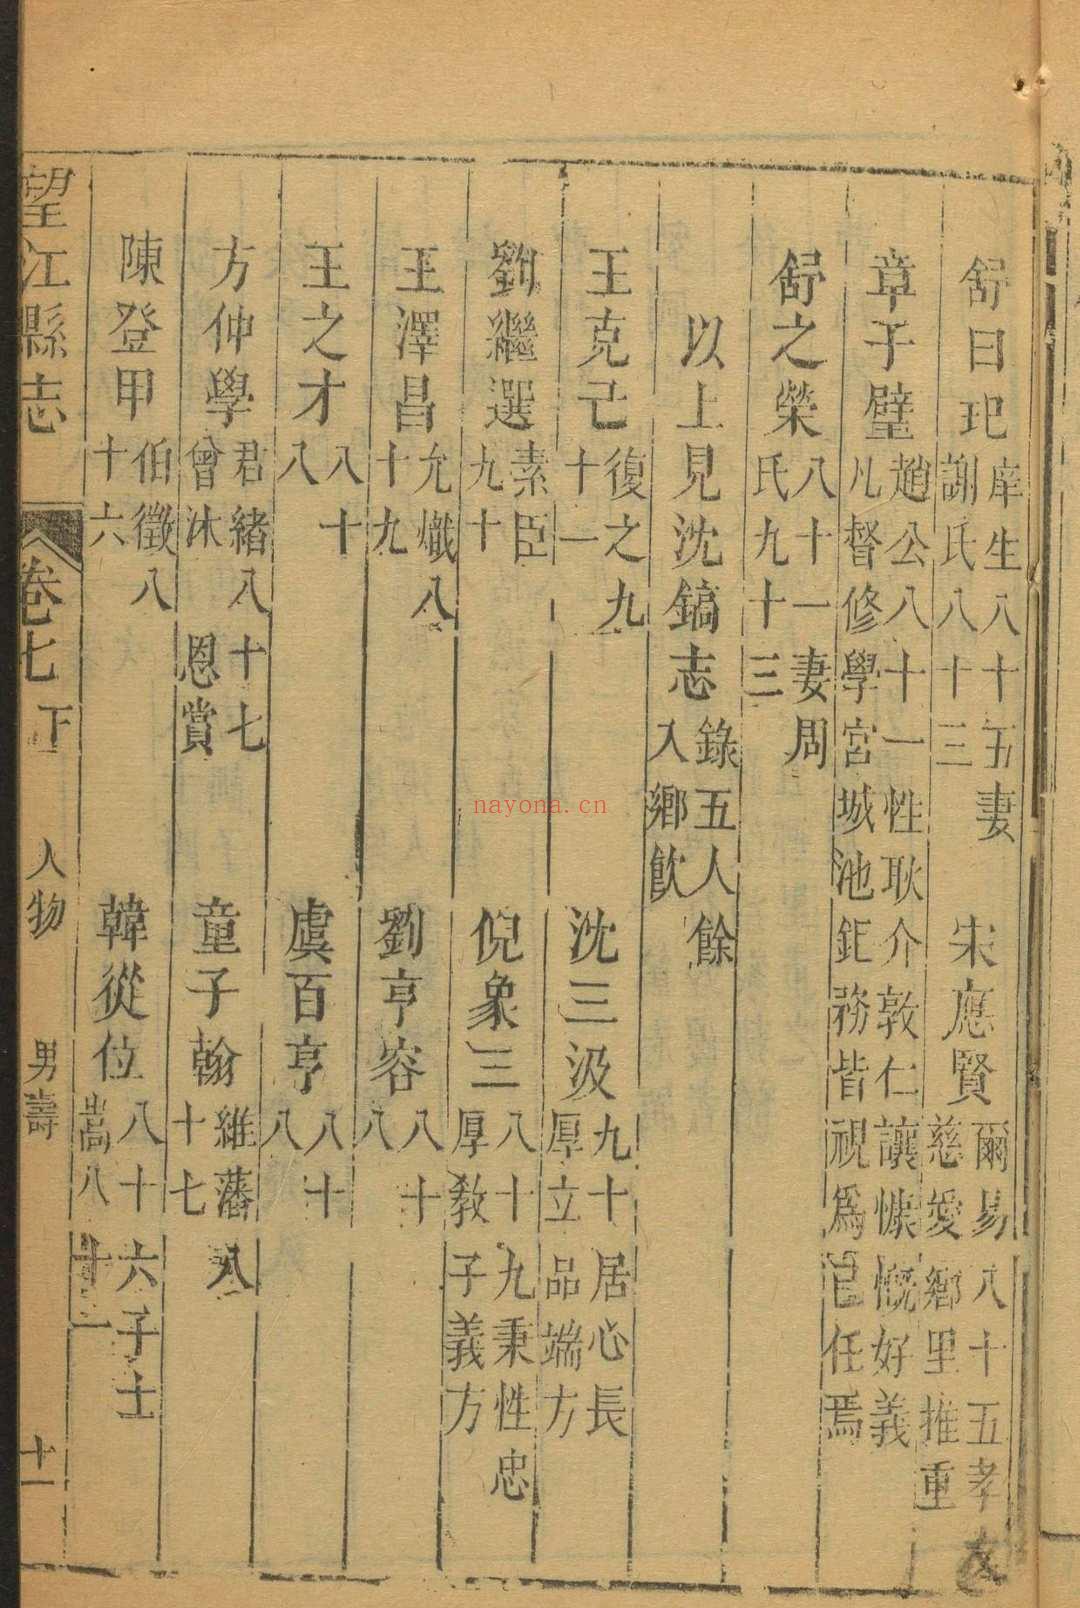 舒曰玘 庠生八十五妻謝氏八十三 宋應賢 爾易八十五孝友慈愛鄉里推重
章于璧 趙公八十一性耿介敦仁讓慷慨好義凡督修學宮城池鉅務皆視爲己任焉
舒之榮 八十一妻周氏九十三
以上見沈鎬志 錄五人餘入鄉飲
王克己 復之九十一 沈三汲 九十居心長厚立品端方
劉繼選 素臣九十一 倪象三 八十九秉性忠厚教子義方
王澤昌 允熾八十九 劉亨容 八十八
王之才 八十八 虞百亨 八十八
方仲學 君緒八十七曾沐恩賞 童子翰 維藩八十七
陳登甲 伯徵八十六 韓從位 八十六子士嵩八十二
望江縣志 卷七下 人物 男壽 十一
nayona.cn